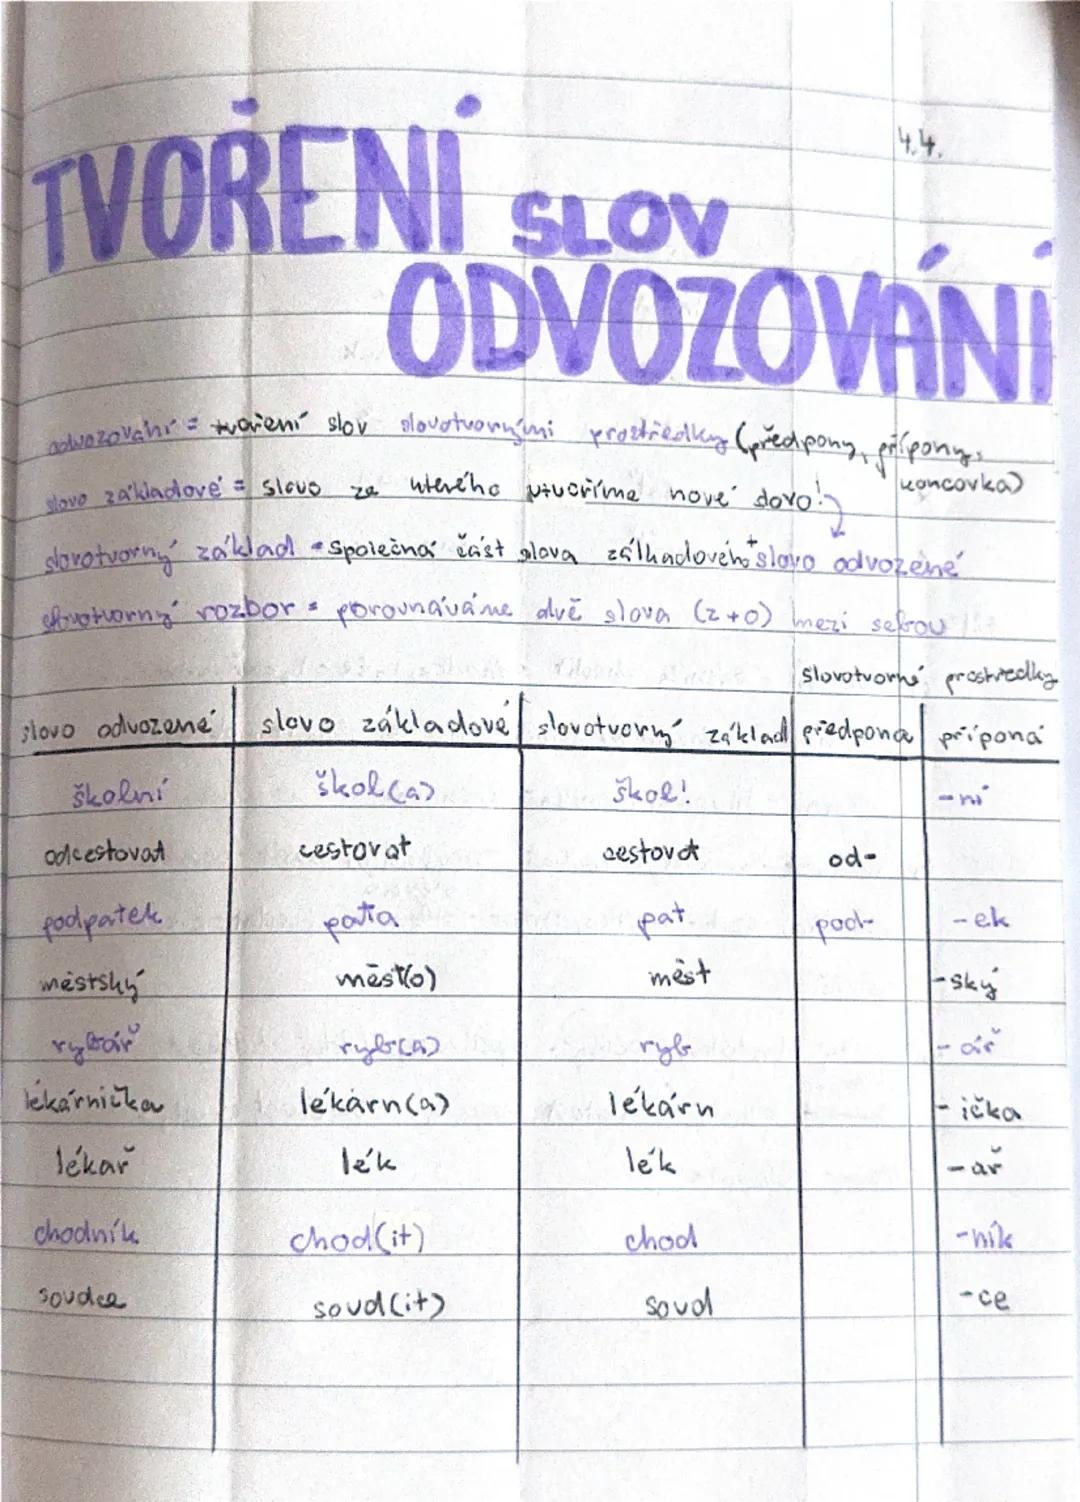 4.4.
TVOŘENÍ SLOV
ODVOZOVÁNÍ
odvozování = tvoření slov slovotvornými prostředky (předpony, přípony,
koncovka)
slovo základové = slovo ze kterého utvoříme nové slovo!
slovotvorný základ = společná část slova základového + slovo odvozené
slovotvorný rozbor = porovnáváme dvě slova (z+o) mezi sebou
slovotvorné prostředky
slovo odvozené slovo základové slovotvorný základ předpona přípona
školní škol(a) škol! -ní
odcestovat cestovat cestovat od-
podpatek pata pat pod- -ek
městský měst(o) měst -ský
rybář ryb(a) ryb -ář
lékárnička lékárn(a) lékárn -ička
lékař lék lék -ař
chodník chod(it) chod -ník
soudce soud(it) soud -ce